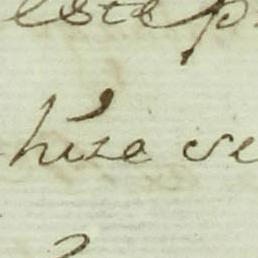 este p
hizo se